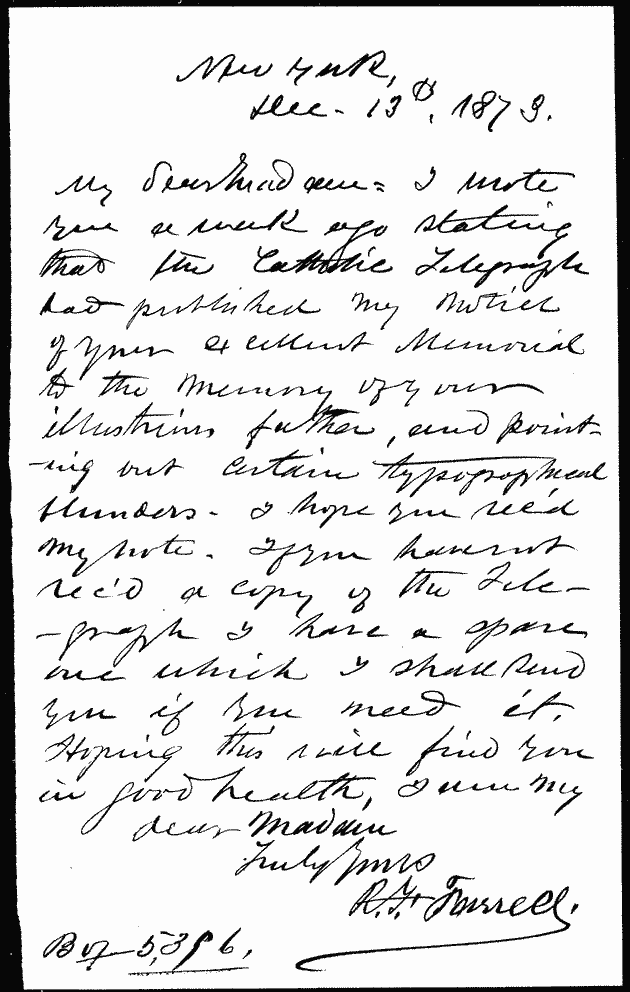 New York,
Dec. 13th, 1873.
My dear Madam = I wrote
you a week ago stating
that the Catholic Telegraph
had published my notice
of your excellent Memorial
to the memory of your
illustrious father, and point-
-ing out certain typographical
blunders. I hope you rec'd
my note. If you have not
rec'd a copy of the Tele-
-graph I have a spare
one which I shall send
you if you need it.
Hoping this will find you
in good health, I am my
dear Madam
Truly Yours
R. F. Farrell.
Box 5,396.